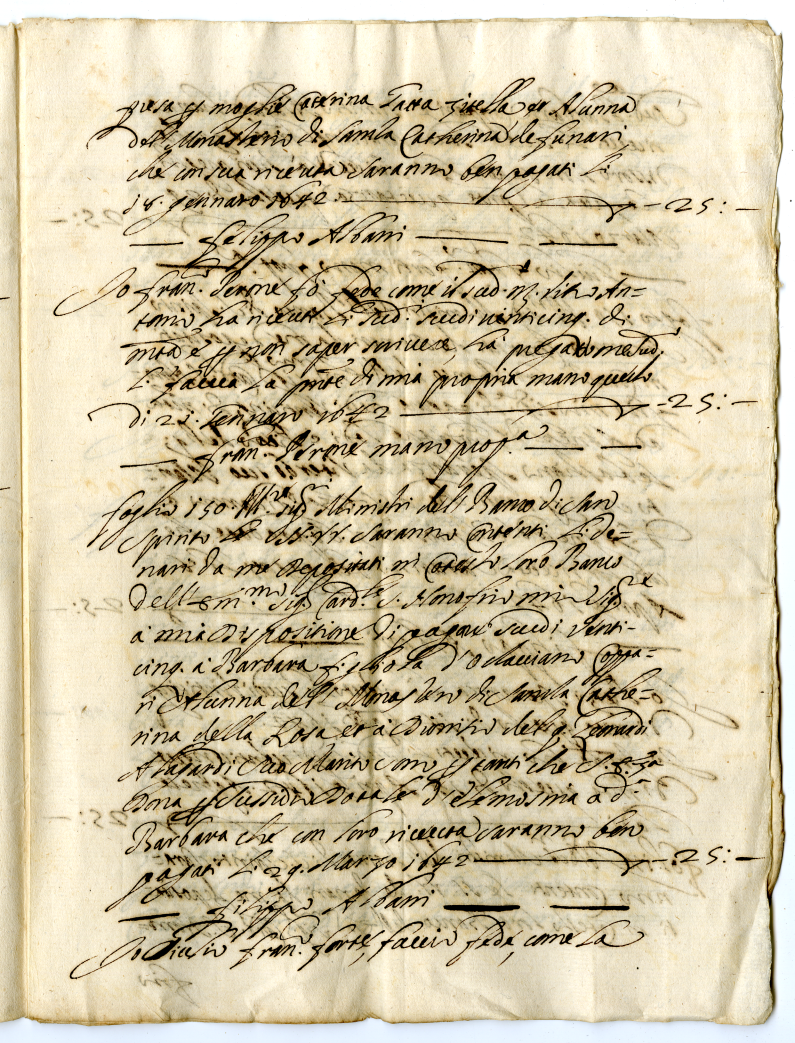 presa p moglie Caterina Tatta zitella et Alunna
dell Monasterio di Santa Catherina de funari,
che con sua ricevuta saranno ben pagati li
18. gennaro 1642 — 25: —
— Filippo Albani —
Io Fran.º Perone fo fede come il sud. m. Vito An=
tonio ha riceuti li sud.i scudi venticinq. di
mta e p non saper scrivere, ha pregato me sud.
li faccia la pnte di mia propria mano questo
di 21. Gennaro 1642 — 25: —
— Fran.º Perone mano prop.a —
foglio 150. Ill.ri sig.ri Ministri dell Banco di San
Spirito VV. SS. saranno contenti li de=
nari da me Depositati in codesto loro Banco
dell' Em.mo Sig. Card.le S. Honofrio mio Sig.re
a mia dispositione di pagare scudi venti-
cinq. a Barbara figliola d'Ottaviano Coppa=
ri Alunna dell Monastero di Santa Cathe=
rina della Rosa et a Dionitio del q.
suo Marito sono p tanti che S. Em.za
dona p sussidio Dotale d'elemosina a d.a
Barbara che con loro ricevuta saranno ben
pagati li 29. Marzo 1642 — 25: —
— Filippo Albani —
Io Giulio Fran.º forte, faccio fede, come la